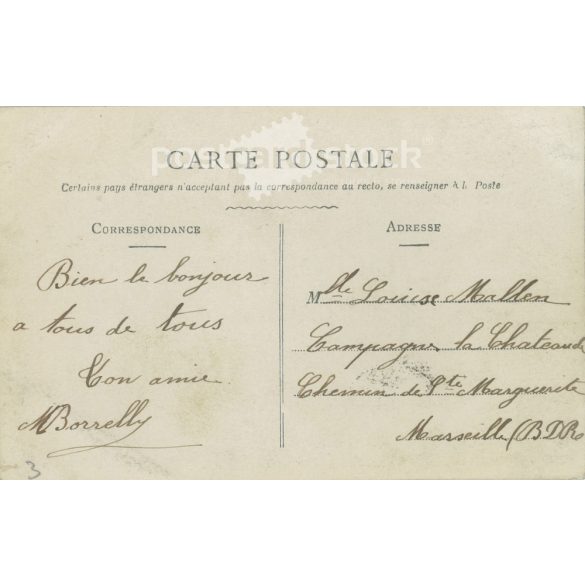 CARTE POSTALE
Certains pays étrangers n'acceptant pas la correspondance au recto, se renseigner à la Poste
CORRESPONDANCE
Bien le bonjour
a tous de tous
Ton amie
M Borrelly
3
ADRESSE
Mlle Louise Mallen
Campagne la Chateaude
Chemin de Ste Marguerite
Marseille (BDR